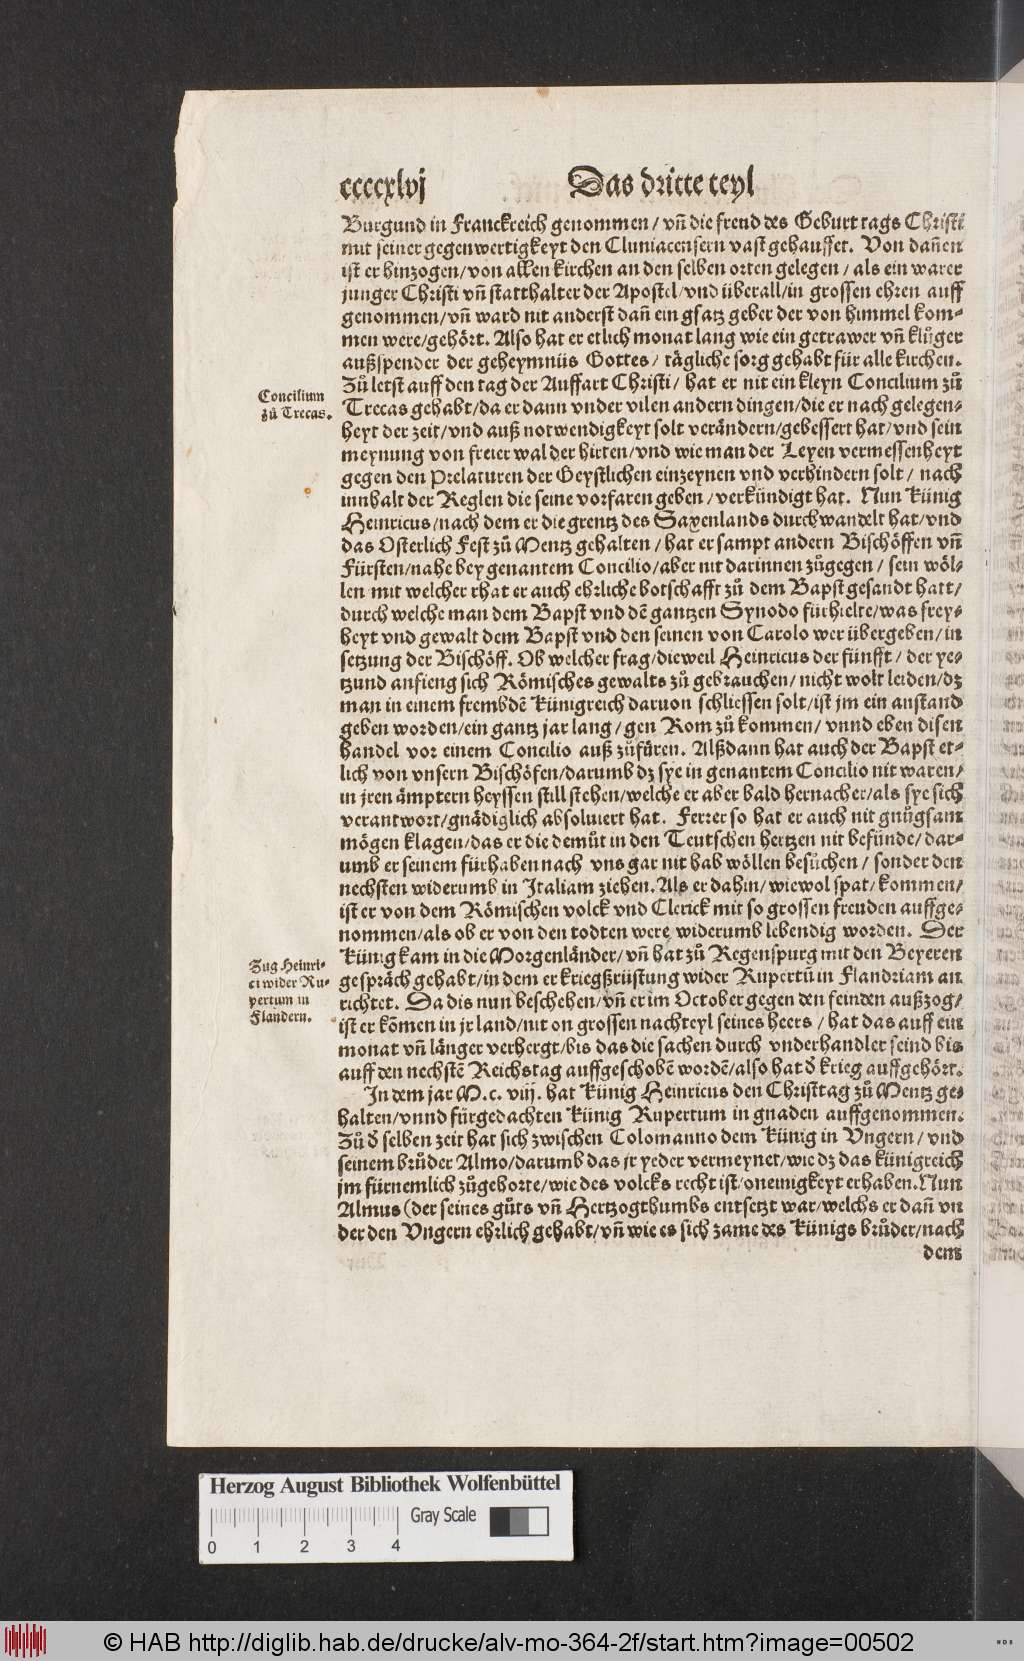 ccccxlvj Das dritte teyl
Burgund in Franckreich genommen / vñ die freud des Geburt tags Christi
mit seiner gegenwertigkeyt den Cluniacensern vast gehauffet. Von dañen
ist er hinzogen / von allen kirchen an den selben orten gelegen / als ein warer
junger Christi vñ statthalter der Apostel / vnd überall / in grossen ehren auff
genommen / vñ ward nit anderst dañ ein gsatz geber der von himmel kom⸗
men were / gehört. Also hat er etlich monat lang wie ein getrawer vñ klůger
außspender der geheymnüs Gottes / tägliche sorg gehabt für alle kirchen.
Zů letst auff den tag der Auffart Christi / hat er nit ein kleyn Concilium zů
Concilium
zů Trecas.
Trecas gehabt / da er dann vnder vilen andern dingen / die er nach gelegen⸗
heyt der zeit / vnd auß notwendigkeyt solt verändern / gebessert hat / vnd sein
meynung von freier wal der hirten / vnd wie man der Leyen vermessenheyt
gegen den Prelaturen der Geystlichen einzeynen vnd verhindern solt / nach
innhalt der Reglen die seine vorfaren geben / verkündigt hat. Nun Künig
Heinricus / nach dem er die grentz des Saxenlands durchwandelt hat / vnd
das Osterlich Fest zů Mentz gehalten / hat er sampt andern Bischöffen vñ
Fürsten / nahe bey genantem Concilio / aber nit darinnen zůgegen / sein wöl⸗
len mit welcher rhat er auch ehrliche botschafft zů dem Bapst gesandt hatt /
durch welche man dem Bapst vnd dẽ gantzen Synodo fürhielte / was frey⸗
heyt vnd gewalt dem Bapst vnd den seinen von Carolo wer übergeben / in
setzung der Bischöff. Ob welcher frag / dieweil Heinricus der fünfft / der ye⸗
tzund anfieng sich Römisches gewalts zů gebrauchen / nicht wolt leiden / dz
man in einem frembdẽ Künigreich daruon schliessen solt / ist jm ein anstand
geben worden / ein gantz jar lang / gen Rom zů kommen / vnnd eben disen
handel vor einem Concilio auß zůfüren. Alßdann hat auch der Bapst et⸗
lich von vnsern Bischöfen / darumb dz sye in genantem Concilio nit waren /
in jren ämptern heyssen still stehen / welche er aber bald hernacher / als sye sich
verantwort / gnädiglich absoluiert hat. Ferrer so hat er auch nit gnůgsam
mögen klagen / das er die demůt in den Teutschen hertzen nit befünde / dar⸗
umb er seinem fürhaben nach vns gar nit hab wöllen besůchen / sonder den
nechsten widerumb in Italiam ziehen. Als er dahin / wiewol spat / kommen /
ist er von dem Römischen volck vnd Clerick mit so grossen freuden auffge⸗
nommen / als ob er von den todten were widerumb lebendig worden. Der
Künig kam in die Morgenländer / vñ hat zů Regenspurg mit den Beyeren
Zug Heinri⸗
ci wider Ru⸗
pertum in
Flandern.
gespräch gehabt / in dem er kriegßrüstung wider Rupertũ in Flandriam an
richtet. Da dis nun beschehen / vñ er im October gegen den feinden außzog /
ist er kõmen in jr land / nit on grossen nachteyl seines heers / hat das auff ein
monat vñ länger verhergt / bis das die sachen durch vnderhandler seind bis
auff den nechstẽ Reichstag auffgeschobẽ wordẽ / also hat d̃ krieg auffgehört.
In dem jar M.c. viij. hat Künig Heinricus den Christtag zů Mentz ge⸗
halten / vnnd fürgedachten Künig Rupertum in gnaden auffgenommen.
Zů d̃ selben zeit hat sich zwischen Colomanno dem Künig in Vngern / vnd
seinem brůder Almo / darumb das jr yeder vermeynet / wie dz das künigreich
jm fürnemlich zůgehorte / wie des volcks recht ist / oneinigkeyt erhaben. Nun
Almus (der seines gůts vñ Hertzogthumbs entsetzt war / welchs er dañ vn
der den Vngern ehrlich gehabt / vñ wie es sich zame des Künigs brůder / nach
dem
Herzog August Bibliothek Wolfenbüttel
Gray Scale
0 1 2 3 4
© HAB http://diglib.hab.de/drucke/alv-mo-364-2f/start.htm?image=00502